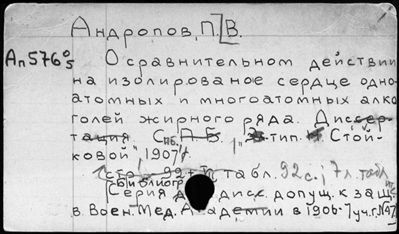 Андропов, П.] В.
Ап 576 0/5
О сравнительном действии
на изолированое сердце одно-
атомных и многоатомных алко
голей жирного ряда. Диссер-
тация. С.П.Б., тип. Стой-
ковой", 1907 г.
стр. 92 + табл. 92 с.; 7 л. табл
библиогр
Серия дисс. допущ. к защ
в Воен. Мед. Академии в 1906-7 уч. г. №